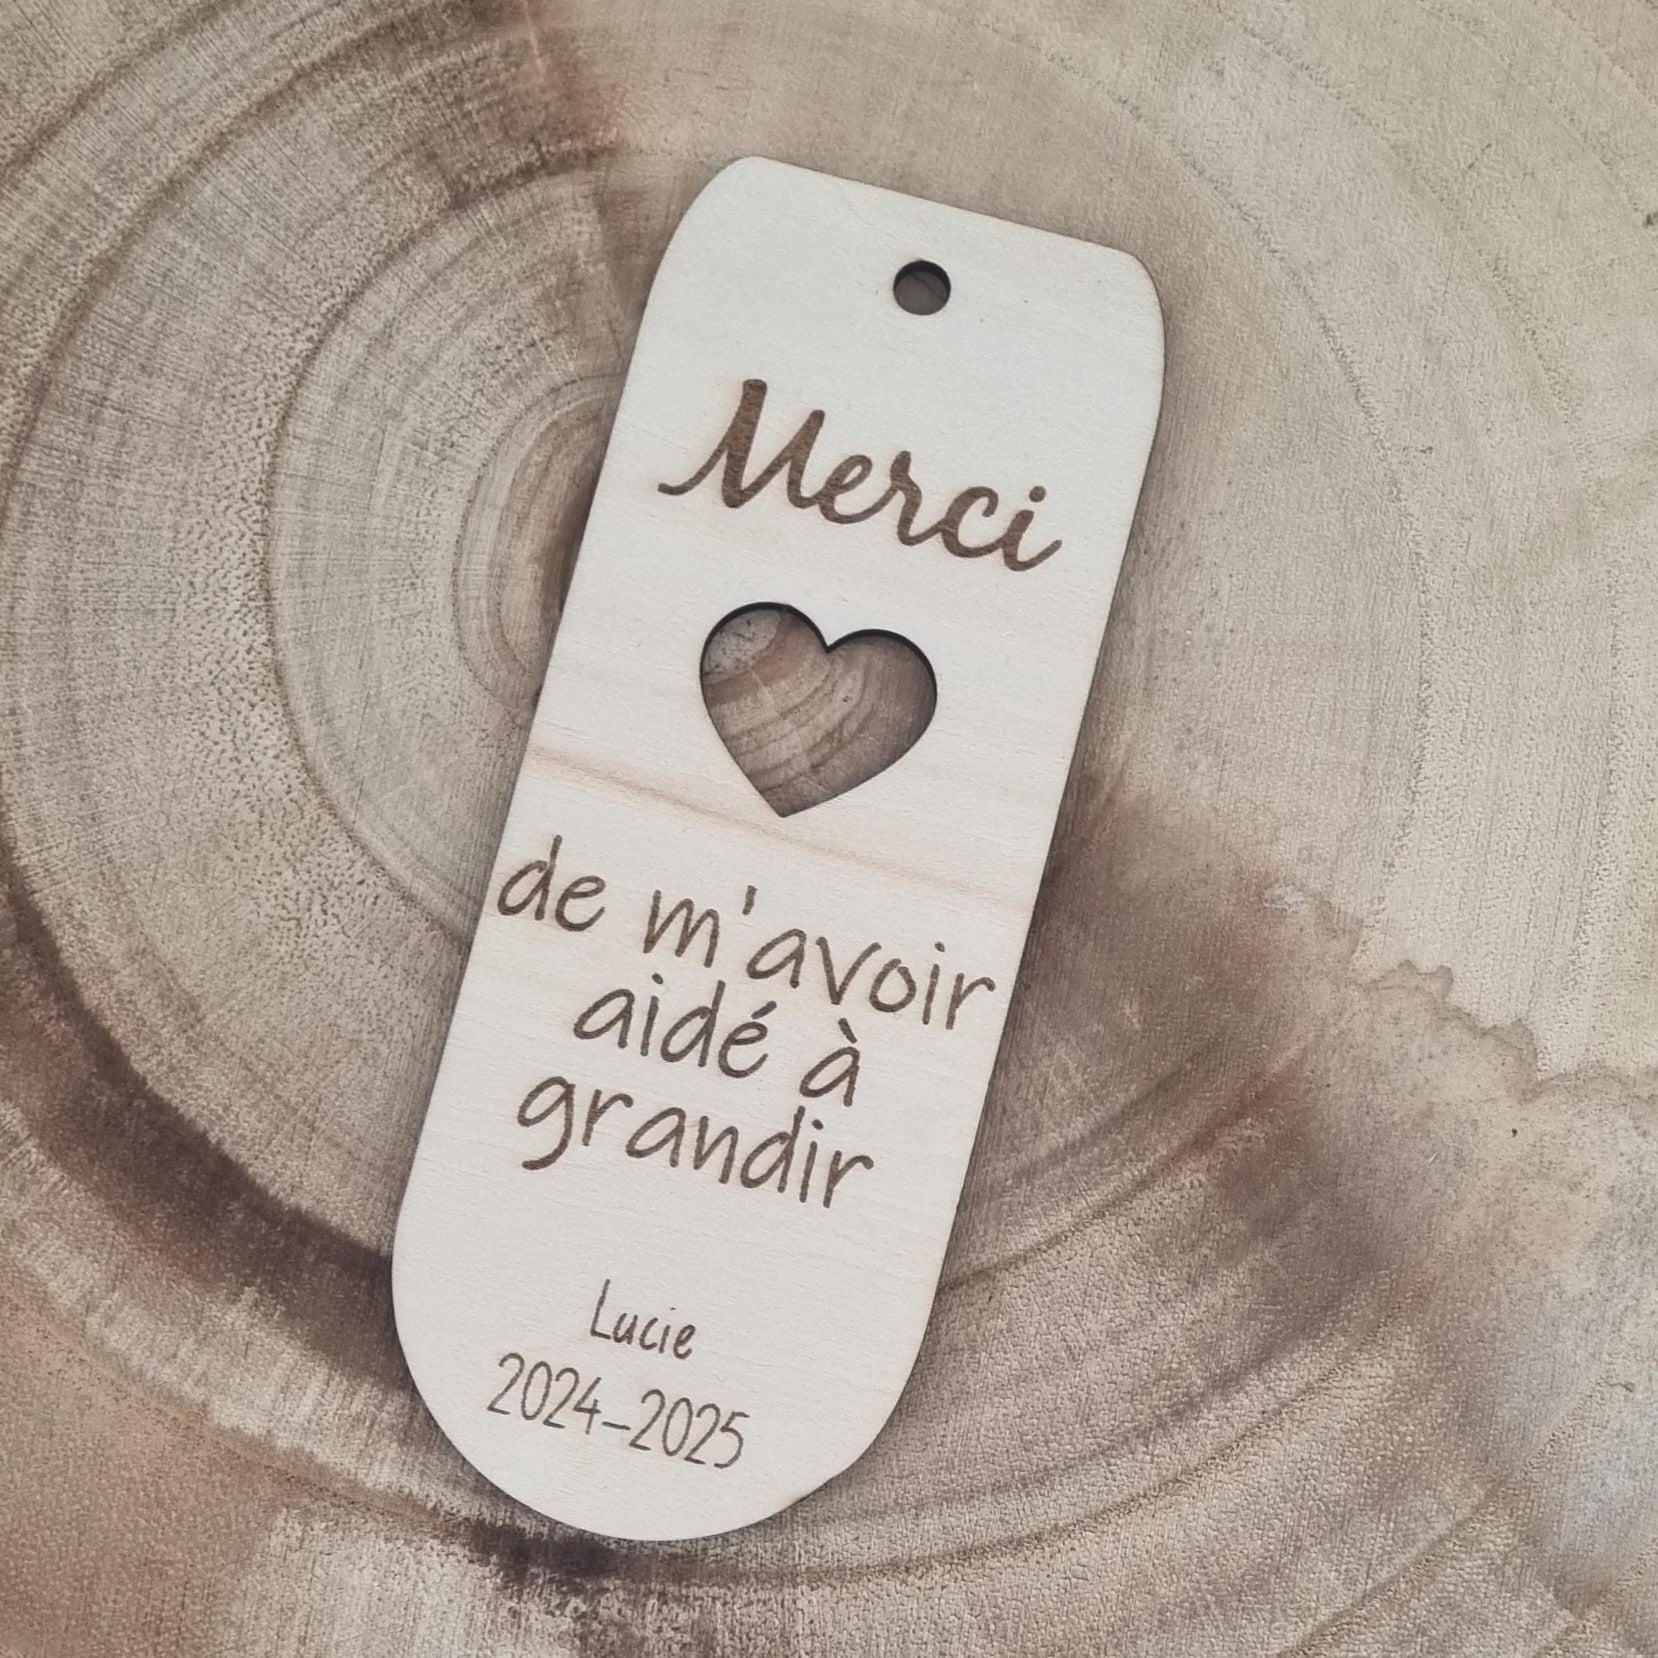 Merci
de m'avoir
aidé à
grandir
Lucie
2024-2025